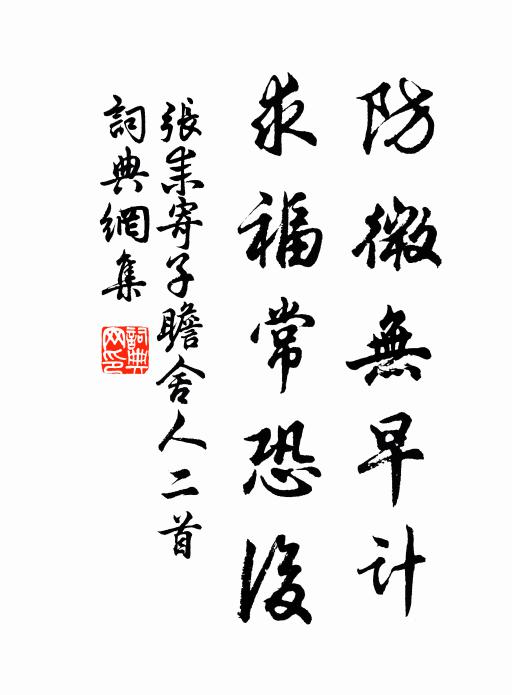 防微無早计
求福常恐後
張耒寄子瞻舍人二首
詞典網集
詞典網印